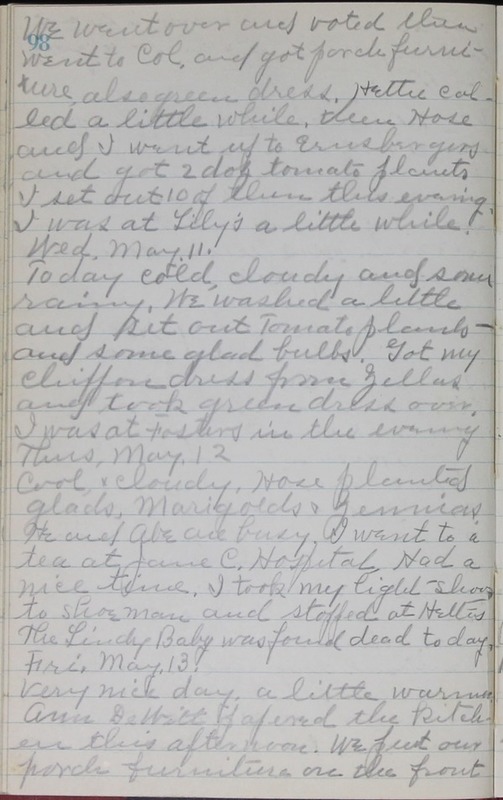 We went over and voted then
98
went to Col. and got porch furni-
ture also green dress. Hettie cal-
led a little while, then Hose
and I went up to Ernsbergers
and got 2 doz tomato plants
I set out 10 of them this evening.
I was at Lily's a little while.
Wed. May. 11.
Today cold, cloudy and some
rainy. We washed a little
and set out Tomato plants
and some glad bulbs. Got my
chiffon dress from Zellas
and took green dress over.
I was at Fosters in the evening
Thurs, May. 12
Cool, & cloudy. Hose planted
glads, Marigolds & Zennias
He and Abe are busy. I went to a
tea at Jane C. Hospital. Had a
nice time. I took my light shoes
to shoe man and stopped at Hetties
The Lindy Baby was found dead today.
Fri. May. 13.
Very nice day. a little warmer
Ann DeWitt papered the Kitch-
en this afternoon. We put our
porch furniture on the front